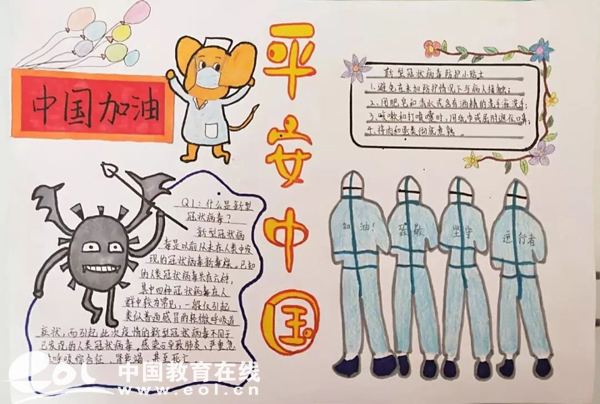 中国加油
平安中国
Q1:什么是新型
冠状病毒?
新型冠状病
毒是以前从未在人类中发
现的冠状病毒新毒株。已知
的人类冠状病毒共有六种,
其中四种冠状病毒在人
群中较为常见,一般仅引起
类似普通感冒的轻微呼吸道
症状,而引起此次疫情的新型冠状病毒不同于
已发现的人类冠状病毒,感染后导致肺炎,严重急
性呼吸
甚至死亡。
新型冠状病毒防护小贴士
1.避免在未加防护情况下与病人接触;
2.用肥皂和
洗手
3.咳嗽和打喷嚏时,用
遮住口鼻;
4.将肉和蛋类彻底煮熟。
加油!
致敬
坚守
逆行者
eol 中国教育在线
www.eol.cn